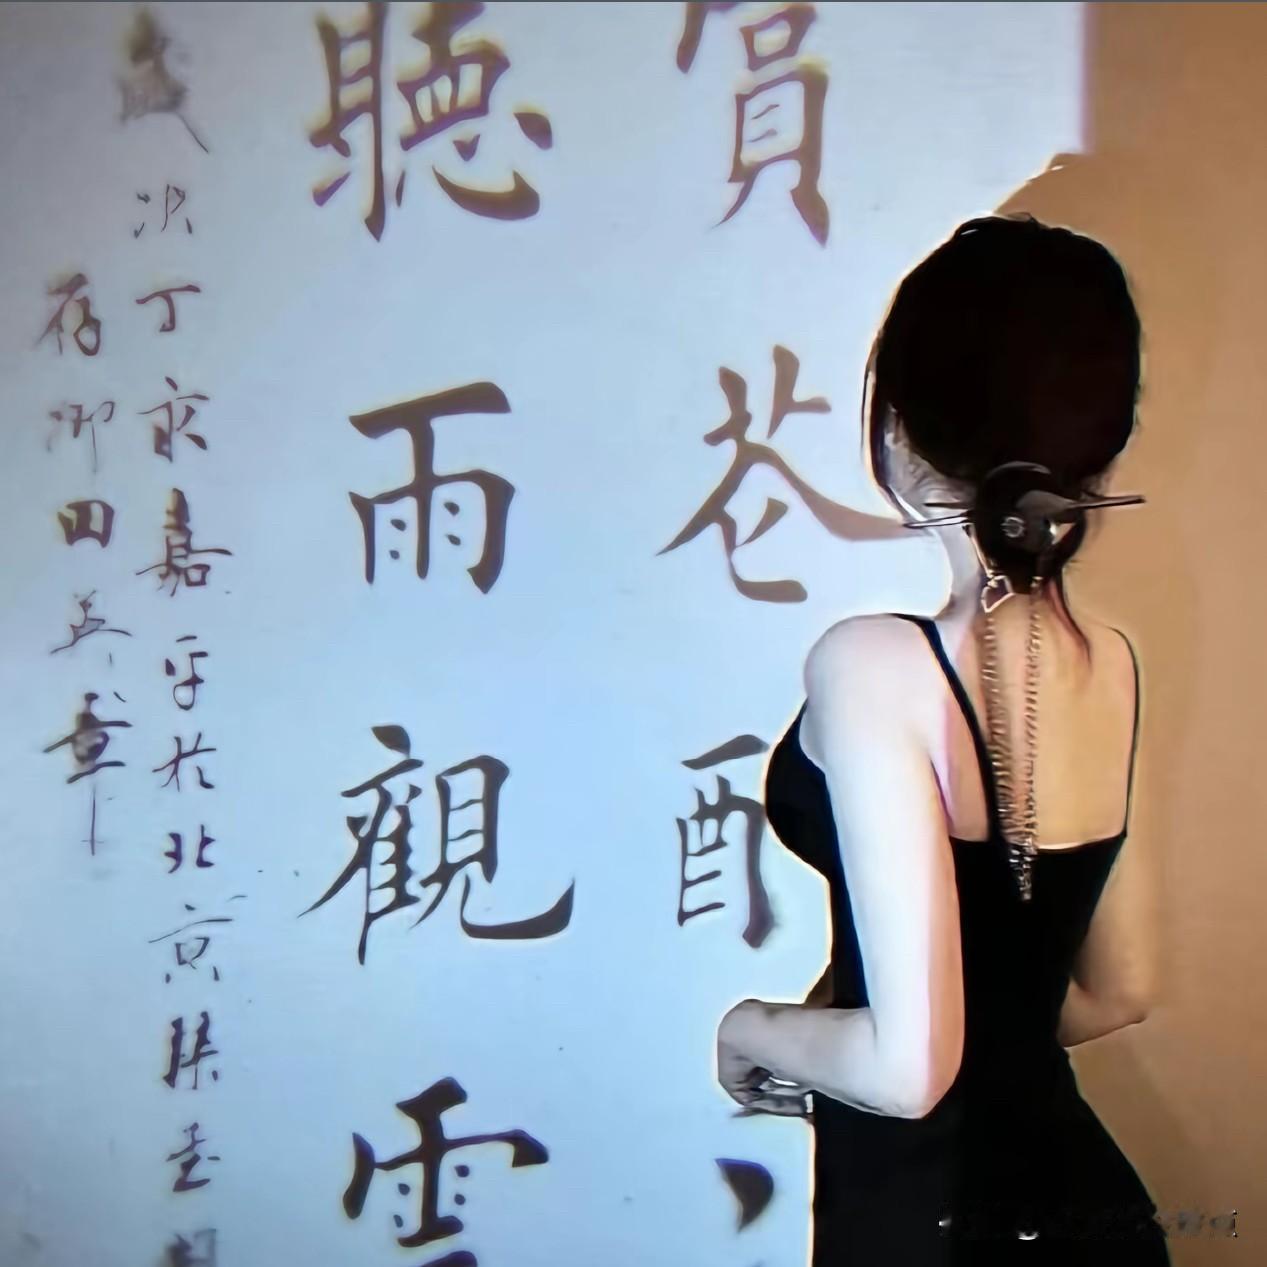 賞花
聽雨觀雲
歲次丁亥嘉平於北京
田英章